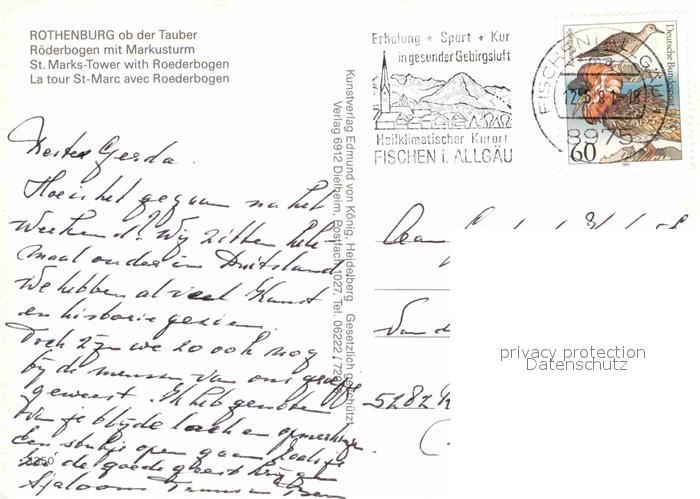 ROTHENBURG ob der Tauber
Röderbogen mit Markusturm
St. Marks-Tower with Roederbogen
La tour St-Marc avec Roederbogen
Erholung + Sport + Kur
in gesunder Gebirgsluft
Heilklimatischer Kurort
FISCHEN i. ALLGÄU
FISCHEN i. ALLGÄU
8975
Deutsche Bundespost
60
Kunstverlag Edmund von König, Heidelberg
Verlag 6912 Dielheim, Postfach 1027, Tel. 06222 /
Gesetzlich geschützt
Gerda.
Hoe is het gegaan na het
weekend? Wij zitten hele-
maal onder in Duitsland
We hebben al veel Kunst
en historie gezien.
Toch zijn we zo ook nog
bij de mensen van ons
geweest. Ik heb genoten
van je blijde lach en
open gaan zoals je
de goede geest
Sjaloom
Aan
5282
privacy protection
Datenschutz